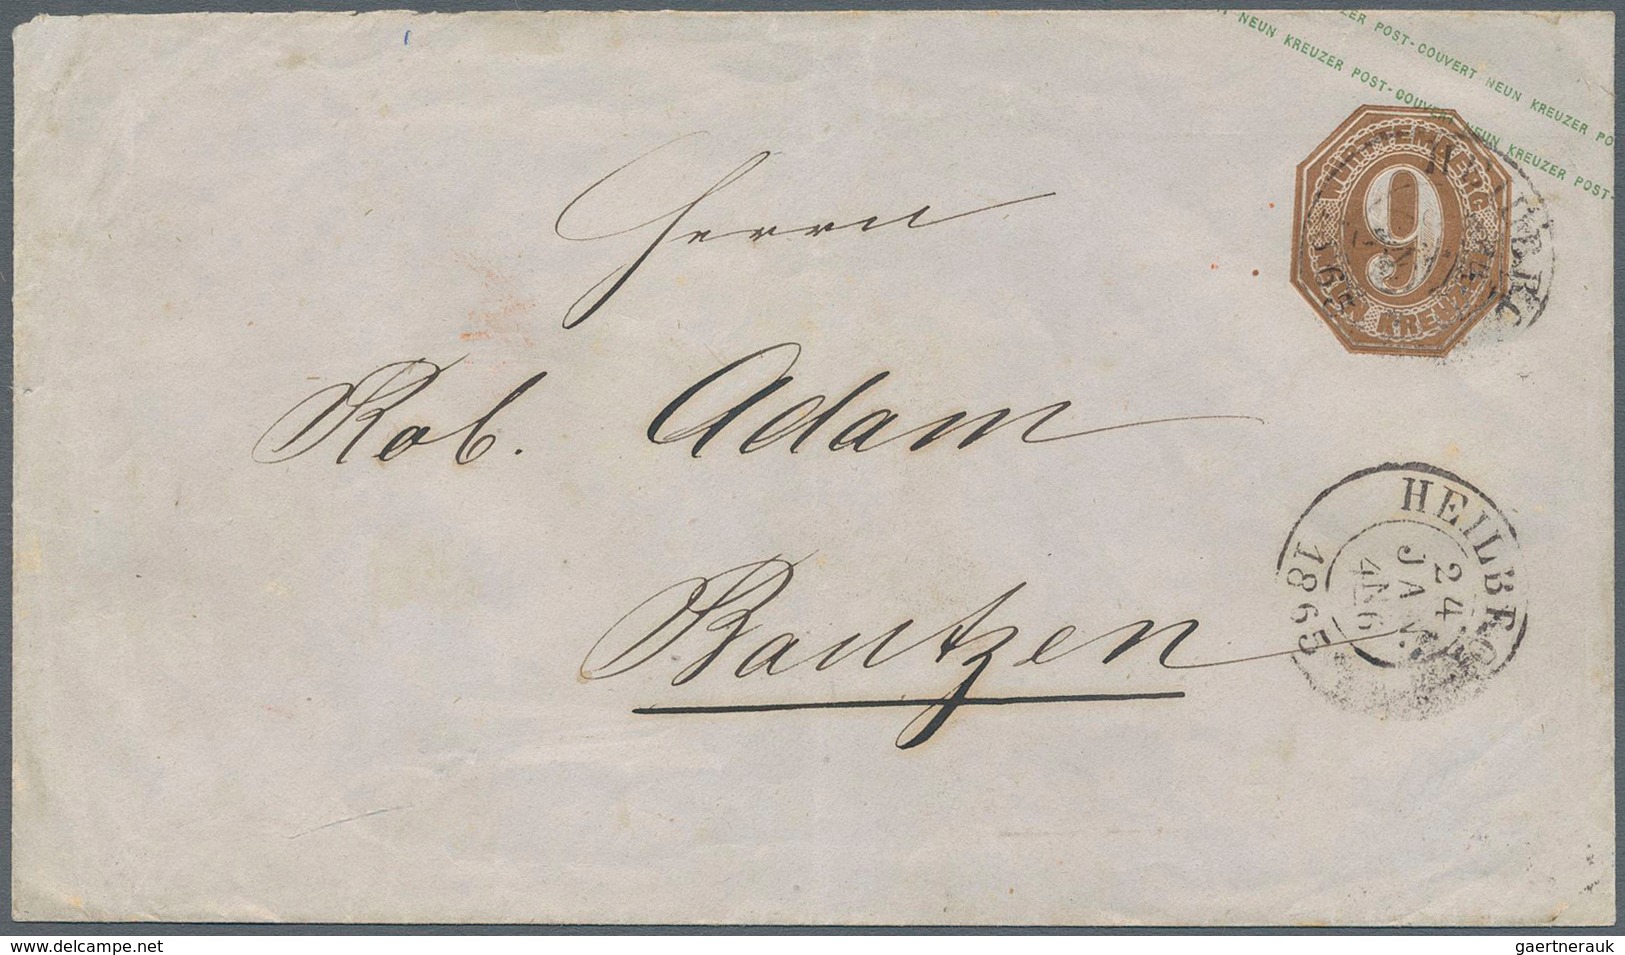 ZER POST-COUVERT NEUN KREUZER PO
NEUN KREUZER POST-COUVERT NEUN KREUZER POST-
WÜRTTEMBERG
9
NEUN KREUZER
Herrn
Rob. Adam
Bautzen
HEILBRONN
24
JAN.
1865
www.delcampe.net
gaertnerauk